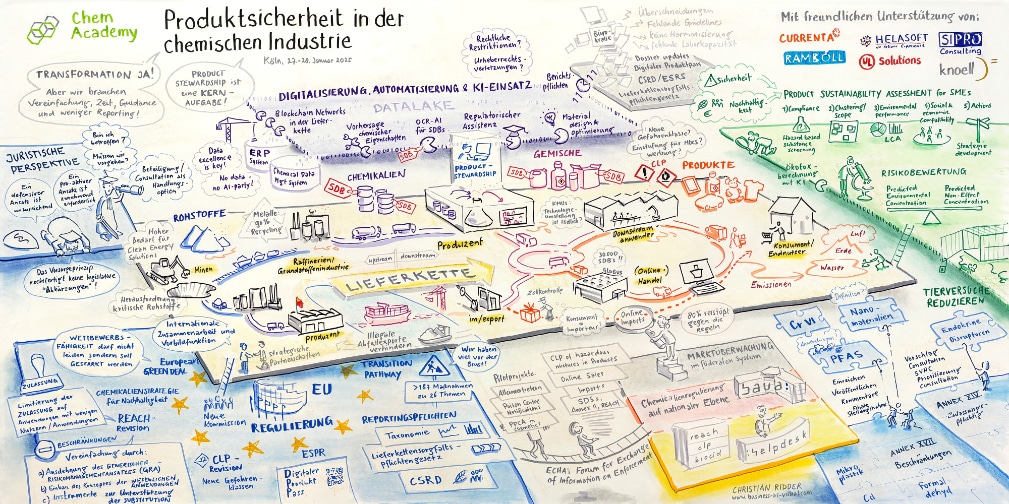 Chem
Academy
Produktsicherheit in der
chemischen Industrie
Köln, 27.-28. Januar 2025
TRANSFORMATION JA!
Aber wir brauchen
Vereinfachung, Zeit, Guidance
und weniger Reporting!
PRODUCT
STEWARDSHIP ist
eine KERN-
AUFGABE!
Rechtliche
Restriktionen?
Urheberrechts-
verletzungen?
Berichts
pflichten
Büro-
kratie
Überschneidungen
Fehlende Guidelines
keine Harmonisierung
fehlende Laborkapazität
Dossier updates
Digitaler Produktpass
CSRD/ESRS
Lieferkettensorgfalts-
pflichtengesetz
Mit freundlichen Unterstützung von:
CURRENTA
HELASOFT
SIPRO
Consulting
RAMBOLL
UL Solutions
knoell
DIGITALISIERUNG, AUTOMATISIERUNG & KI-EINSATZ
DATALAKE
Blockchain Networks
in der Liefer-
kette
Vorhersage
chemischer
Eigenschaften
OCR-AI
für SDBs
Regulatorischer
Assistenz
Material
design &
optimierung
ERP
System
Chemical Data
Mgt System
Data
excellence
is key!
No data -
no AI-party!
SDB
PRODUCT-
STEWARDSHIP
Neue
Gefahrenklasse?
Einstufung für MOCS?
Sicherheit
Nachhaltig-
keit
PRODUCT SUSTAINABILITY ASSESSMENT for SMEs
1) Compliance
2) Clustering/
Scope
3) Environmental
performance
4) Social &
economic
compatibility
5) Actions
Hazard based
substance
screening
LCA
Strategie
development
Ökotox-
berechnung
mit KI
RISIKOBEWERTUNG
Predicted
Environmental
Concentration
Predicted
Non-Effect
Concentration
JURISTISCHE
PERSPEKTIVE
Bin ich
betroffen?
Müssen wir
vorgehen?
Beteiligung/
Consultation als
Handlungs-
option
Ein
defensiver
Ansatz ist
unzureichend
Ein
pro-aktiver
Ansatz ist
zunehmend
erforderlich
Das Vorsorgeprinzip
rechtfertigt keine legislative
"Abkürzungen"!
CHEMIKALIEN
SDB
SDB
GEMISCHE
SDB
SDB
CLP
PRODUKTE
ROHSTOFFE
Metalle:
90%
Recycling!
Hoher
Bedarf für
Clean Energy
Solutions
Minen
Herausforderung
kritische Rohstoffe
Raffinerien/
Grundstoffenindustrie
upstream
downstream
Produzent
LIEFERKETTE
Downstream
anwender
30.000
SDBs !!
Globus
Online-
Handel
Konsument/
Endnutzer
Luft
Erde
Wasser
Emissionen
Produzent
im/export
Illegale
Abfallexporte
verhindern
Zollkontrolle
Konsument =
Importeur!
Online-
Imports
80% verstößt
gegen die
Regeln
TIERVERSUCHE
REDUZIEREN
Internationale
Zusammenarbeit und
Vorbildfunktion
strategische
Partnerschaften
WETTBEWERBS-
FÄHIGKEIT darf nicht
leiden sondern soll
GESTÄRKT werden
European
GREEN DEAL
ZULASSUNG
Limitierung der
ZULASSUNG auf
Anwendungen mit wenigen
Nutzern/Anwendungen
CHEMIKALIENSTRATEGIE
für Nachhaltigkeit
REACH-
Revision
BESCHRÄNKUNGEN
Vereinfachung durch:
a) Ausdehnung des GENERISCHEN
RISIKOMANAGEMENTANSATZES (GRA)
b) Einbau des Konzeptes der WESENTLICHEN
ANWENDUNGEN
c) Instrumente zur Unterstützung
der SUBSTITUTION
Neue
Kommission
EU
REGULIERUNG
CLP-
REVISION
Neue Gefahren-
klassen
ESPR
Digitaler
Produkt
Pass
TRANSITION
PATHWAY
>180 Maßnahmen
zu 26 Themen
Wir haben
viel vor der
Brust!
REPORTINGSPFLICHTEN
Taxonomie
Lieferkettensorgfalts-
Pflichtengesetz
CSRD
CLP of hazardous
mixtures in Products
Online Sales
Imports
SDBs,
Annex II, REACH
Pilotprojekte:
Poison Center
Notification
PPCA in
cosmetics
ECHAs Forum for Exchange
of Information on Enforcement
MARKTÜBERWACHUNG
im föderalen System
Chemikalienregulierung
auf nationaler Ebene
baua:
reach
clp
biozid
Helpdesk
CHRISTIAN RIDDER
www.business-as-visual.com
Definition?
Cr VI
Nano-
materialien
PFAS
Endocrine
Disruptors
Einreichen
Veröffentlichen
Kommentare
Stellungnahme
Vorschlag
Consultation
SVHC
Priorisierung
Consultation
ANNEX XIV
Zulassungs-
pflicht
ANNEX XVII
Beschränkungen
Mikro-
plastik
Formal-
dehyd